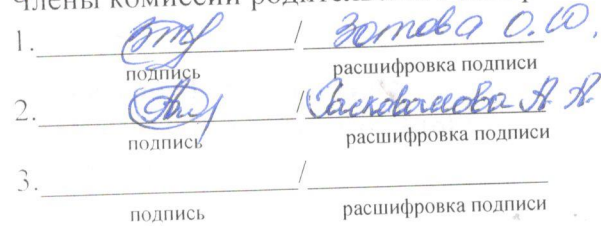 Члены комиссии
1. / Зотова О.Ю.
подпись расшифровка подписи
2. / А. А.
подпись расшифровка подписи
3. /
подпись расшифровка подписи